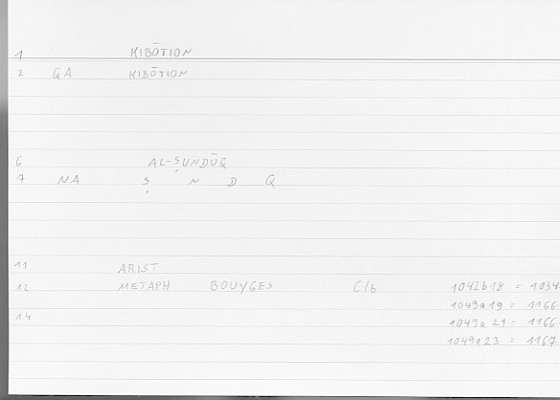 1 KIBŌTION
2 GA KIBŌTION
6 AL-ṢUNDŪQ
7 NA Ṣ N D Q
11 ARIST
12 METAPH BOUYGES C/b 1042b18 = 1034
1049a19 = 1166
14 1049a21 = 1166
1049a23 = 1167